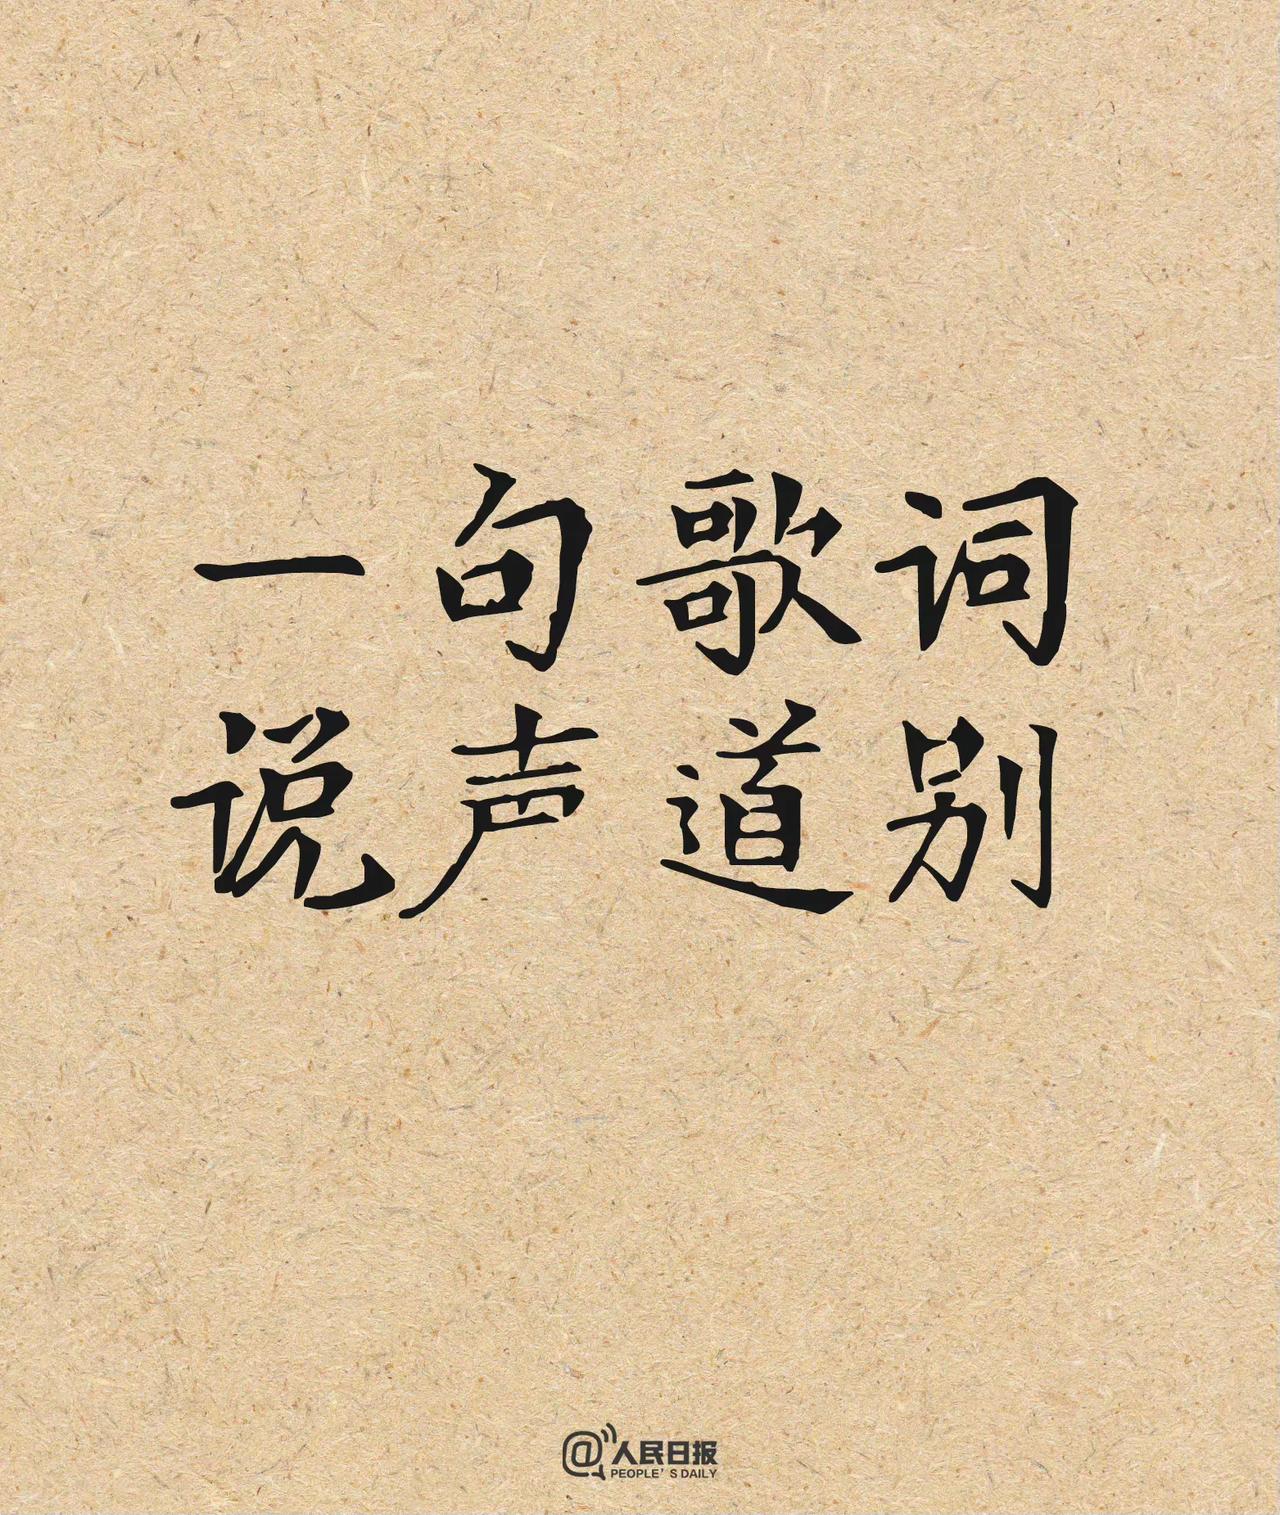 一句歌词
说声道别
@人民日报
PEOPLE'S DAILY